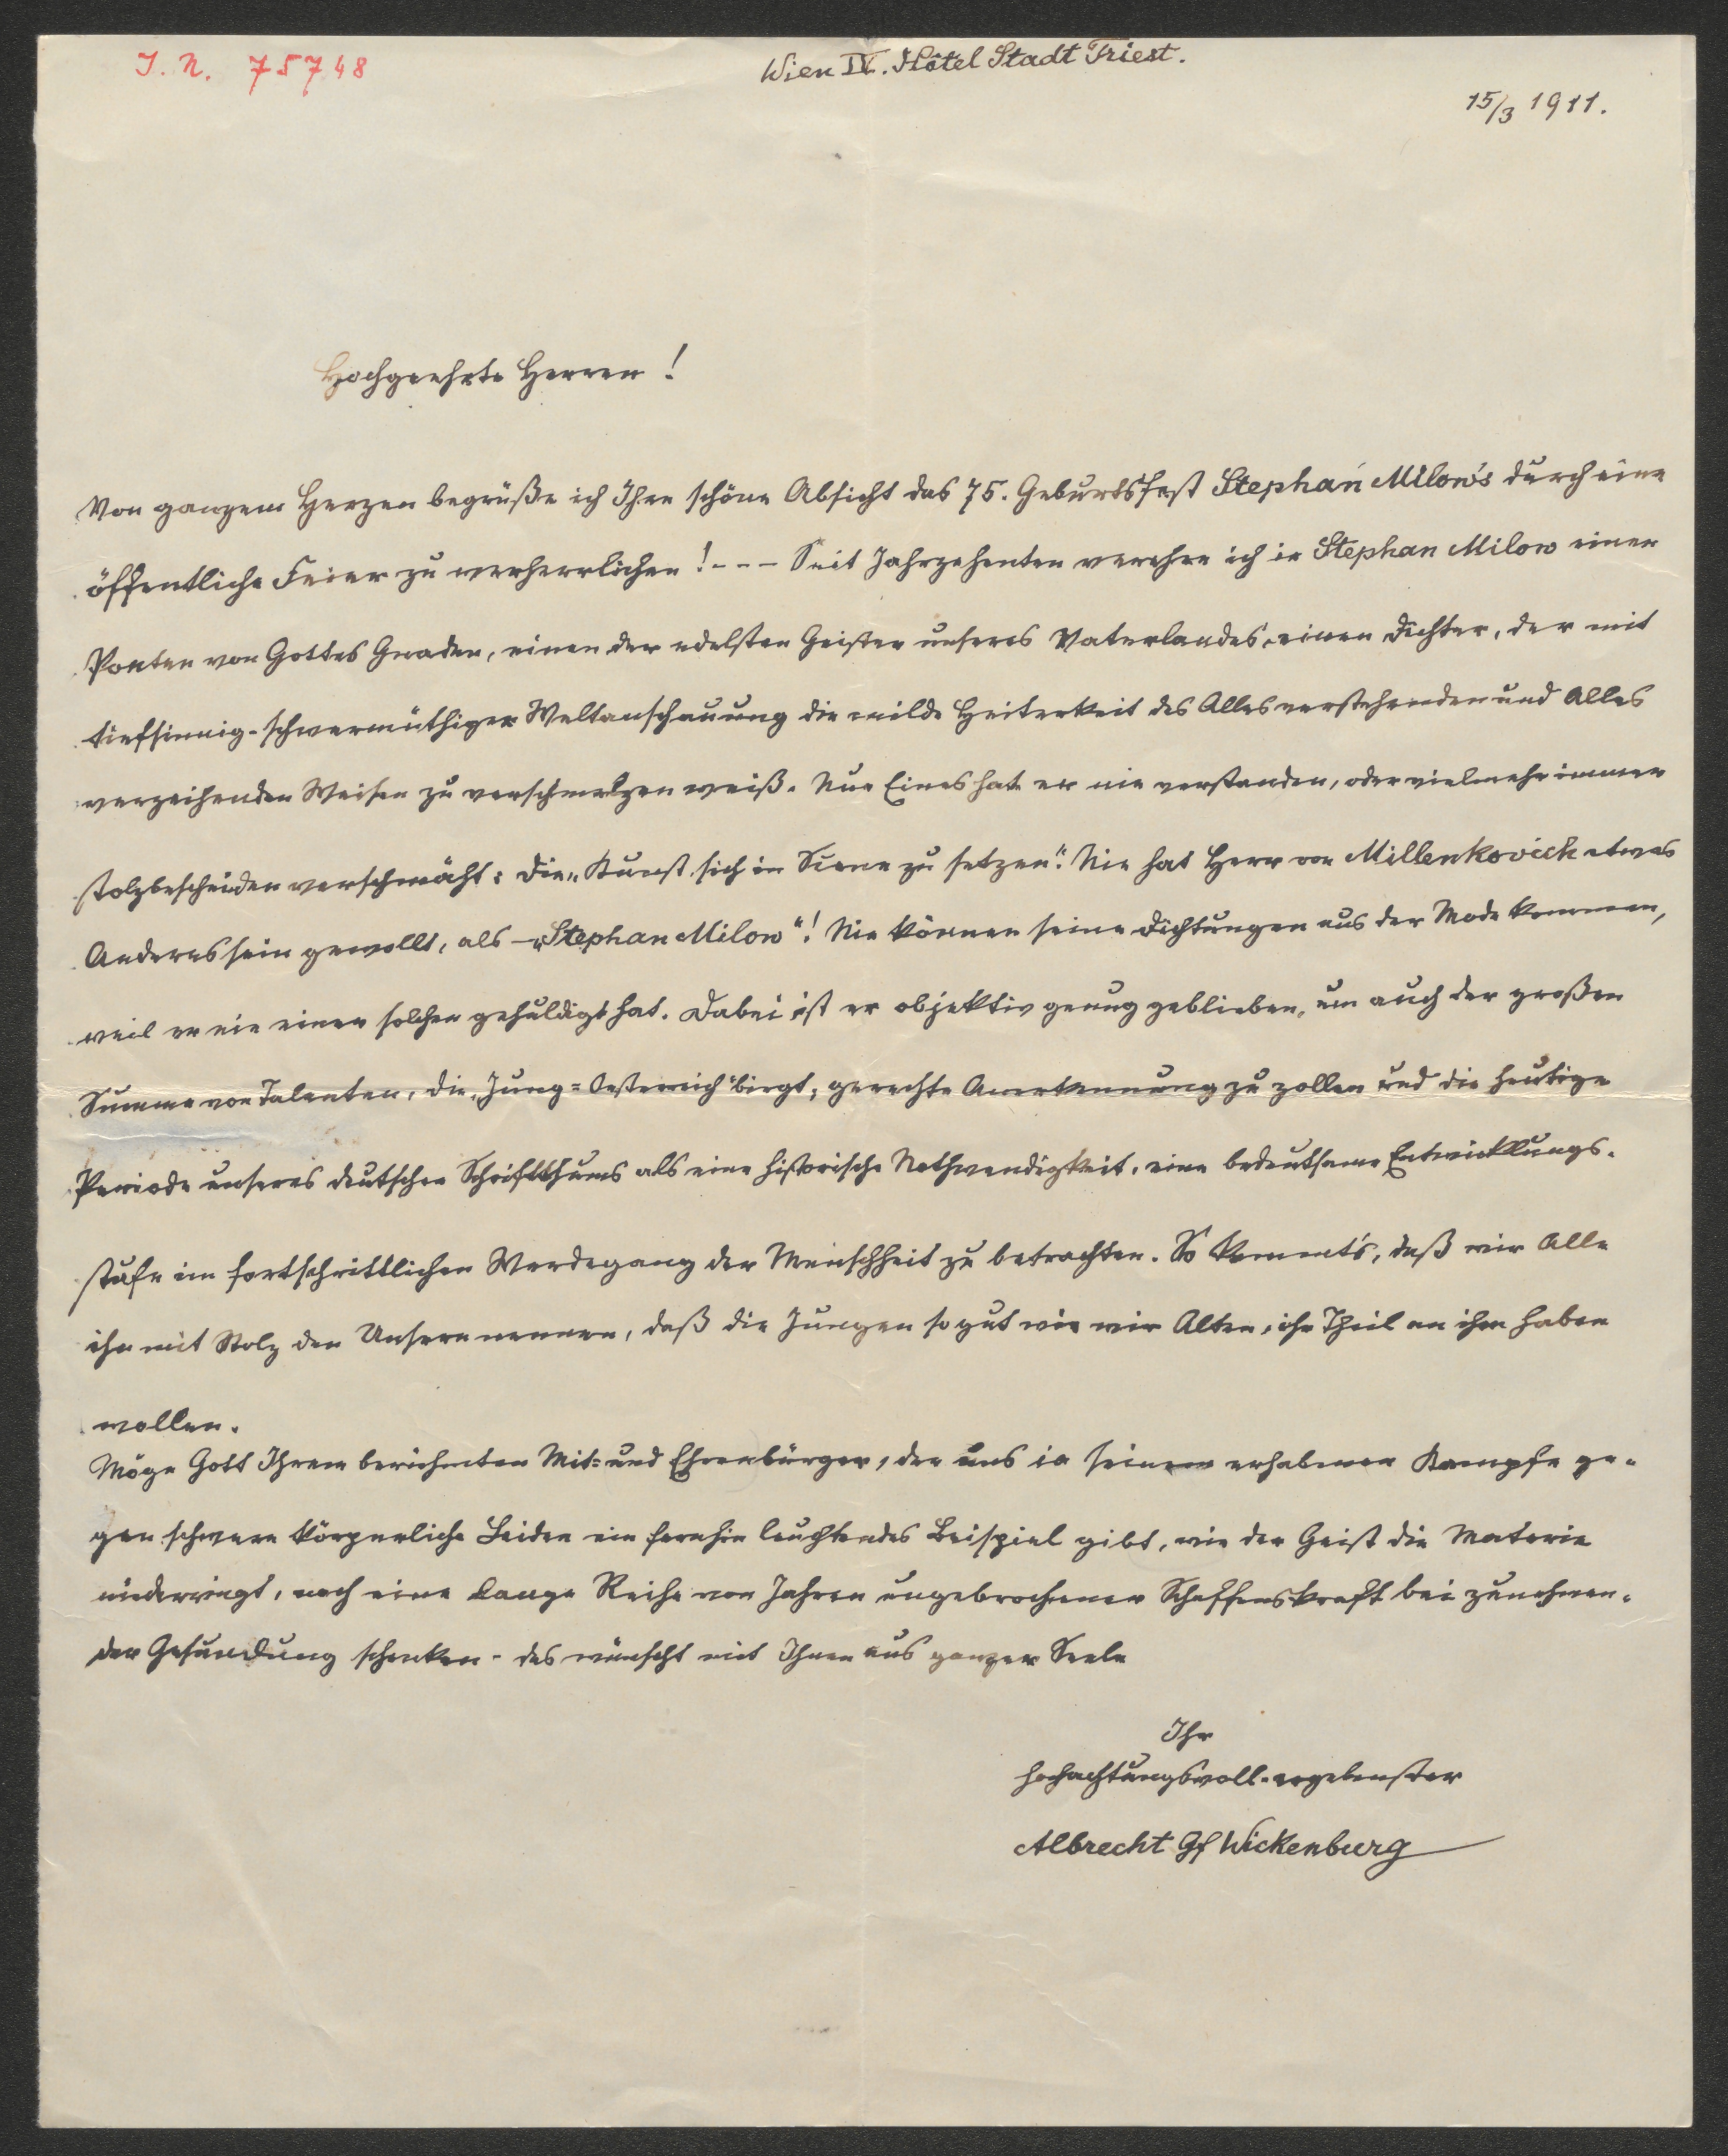 I. N. 75748
Wien IV. Hôtel Stadt Triest.
15/3 1911.
Hochgeehrte Herren!
Von ganzem Herzen begrüße ich Ihre schöne Absicht das 75. Geburtsfest Stephan Milow's durch eine
öffentliche Feier zu verherrlichen! - - - Seit Jahrzehenten verehre ich in Stephan Milow einen
Poeten von Gottes Gnaden, einen der edelsten Geister unseres Vaterlandes, einen Dichter, der mit
tiefsinnig-schwermüthiger Weltanschauung die milde Heiterkeit des Alles verstehenden und Alles
verzeihenden Weisen zu verschmelzen weiß. Nur Eines hat er nie verstanden, oder vielmehr immer
stolzbescheiden verschmäht: die „Kunst sich in Scene zu setzen". Nie hat Herr von Millenkovich etwas
Anderes sein gewollt, als – „Stephan Milow"! Nie können seine Dichtungen aus der Mode kommen,
weil er nie einer solchen gehuldigt hat. Dabei ist er objektiv genug geblieben, um auch der großen
Summe von Talenten, die „Jung=Oesterreich" birgt, gerechte Anerkennung zu zollen und die heutige
Periode unseres deutschen Schriftthums als eine historische Nothwendigkeit, eine bedeutsame Entwicklungs-
stufe im fortschrittlichen Werdegang der Menschheit zu betrachten. So kommt's, daß wir Alle
ihn mit Stolz den Unsern nennen, daß die Jungen so gut wie wir Alten, ihr Theil an ihm haben
wollen.
Möge Gott Ihrem berühmten Mit= und Ehrenbürger, der uns in seinem erhabenen Kampfe ge-
gen schwere körperliche Leiden ein fernhin leuchtendes Beispiel gibt, wie der Geist die Materie
niederringt, noch eine lange Reihe von Jahren ungebrochener Schaffenskraft bei zunehmen-
der Gesundung schenken - das wünscht mit Ihnen aus ganzer Seele
Ihr
hochachtungsvoll-ergebenster
Albrecht Gf Wickenburg